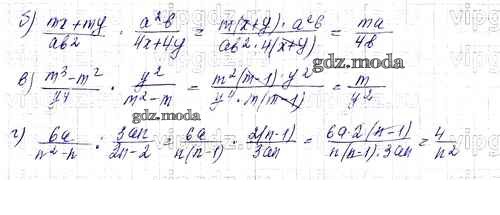 б) (mx+my)/(ab2) · (a²b)/(4x+4y) = (m(x+y)·a²b)/(ab2·4(x+y)) = (ma)/(4b)
gdz.moda
в) (m³-m²)/(y⁴) · (y²)/(m²-m) = (m²(m-1)·y²)/(y⁴·m(m-1)) = (m)/(y²)
gdz.moda
г) (6a)/(n²-n) : (3an)/(2n-2) = (6a)/(n(n-1)) · (2(n-1))/(3an) = (6a·2(n-1))/(n(n-1)·3an) = (4)/(n²)
gdz.moda